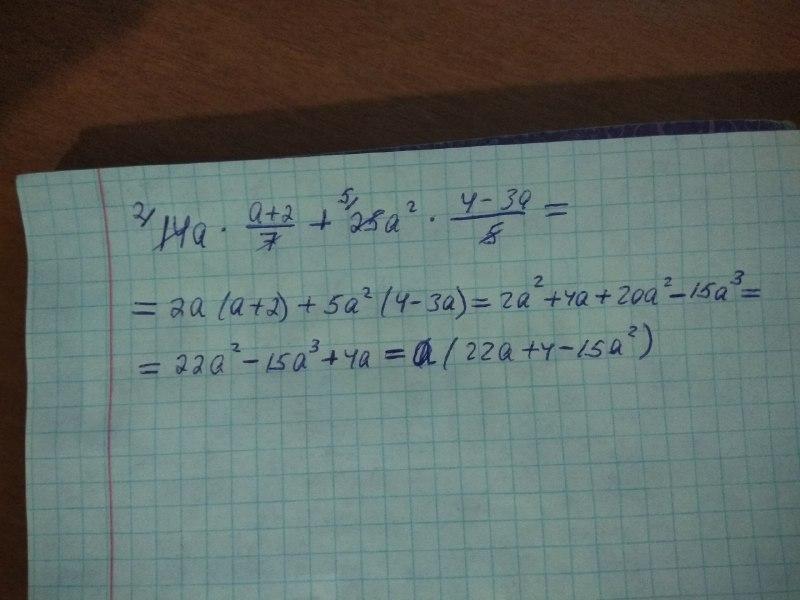 2/ 14a · (a+2)/7 + 5/ 25a² · (4-3a)/5 =
= 2a (a+2) + 5a² (4-3a) = 2a² + 4a + 20a² - 15a³ =
= 22a² - 15a³ + 4a = a (22a + 4 - 15a²)